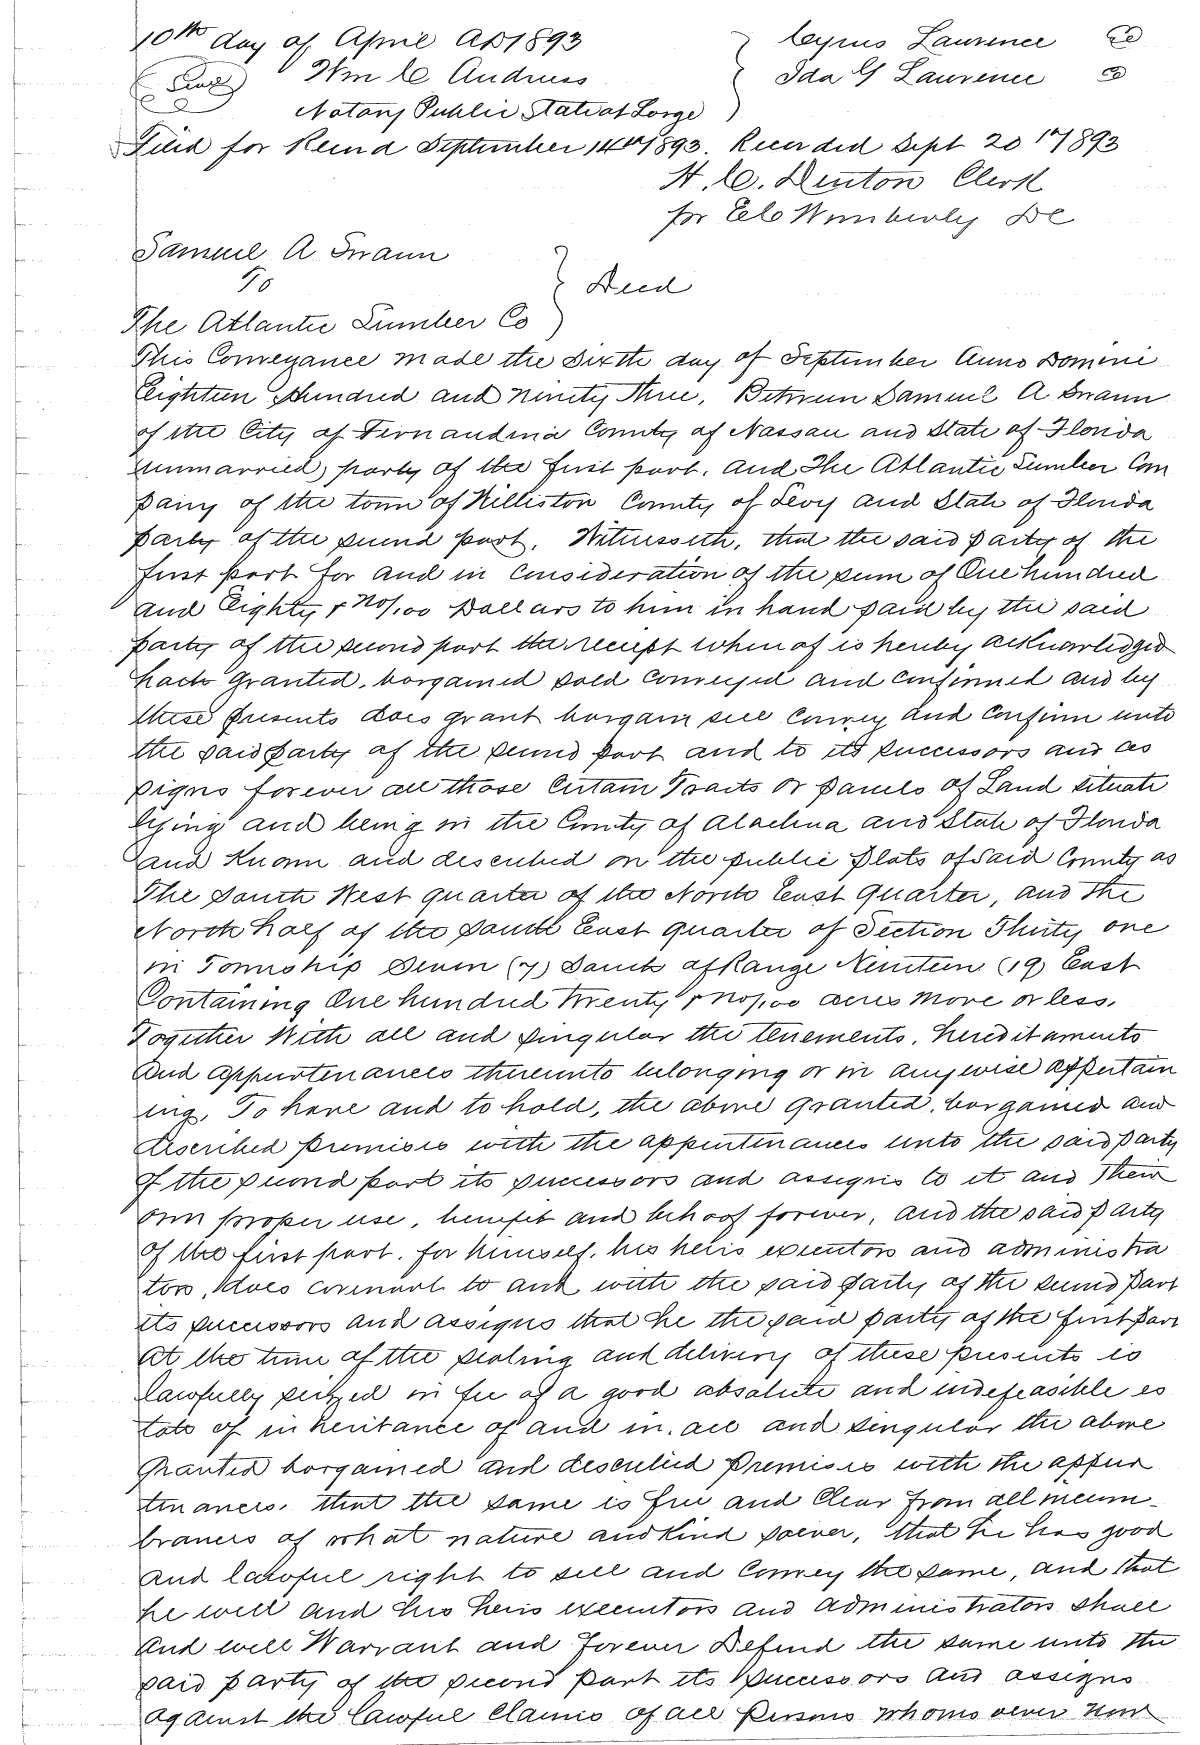 10th day of April AD 1893 } Cyrus Laurence
Seal Wm C Andruss } Ida G Laurence
Notary Public State at Large
Filed for Record September 14th 1893. Recorded Sept 20th 1893
H. C. Denton Clerk
for E C Wimberly DC
Samuel A Swann
To } Deed
The Atlantic Lumber Co
This Conveyance made the Sixth day of September Anno Domini
Eighteen Hundred and Ninety Three, Between Samuel A Swann
of the City of Fernandina County of Nassau and State of Florida
unmarried, party of the first part, and The Atlantic Lumber Com
pany of the town of Williston County of Levy and State of Florida
party of the second part, Witnesseth, that the said party of the
first part for and in consideration of the sum of One hundred
and Eighty & no/100 Dollars to him in hand paid by the said
party of the second part the receipt when of is hereby acknowledged
hath granted, bargained sold conveyed and confirmed and by
these presents does grant bargain sell convey and confirm unto
the said party of the second part and to its successors and as
signs forever all those Certain Tracts or parcels of Land situate
lying and being in the County of Alachua and State of Florida
and Known and described on the public plats of said County as
The South West quarter of the North East quarter, and the
North half of the South East quarter of Section Thirty one
in Township Seven (7) South of Range Nineteen (19) East
Containing One hundred Twenty & no/100 acres more or less.
Together With all and singular the tenements, hereditaments
and appurtenances thereunto belonging or in anywise appertain
ing, To have and to hold, the above granted, bargained and
described premises with the appurtenances unto the said party
of the second part its successors and assigns to it and Their
own proper use, benefit and behoof forever, and the said party
of the first part, for himself, his heirs executors and administra
tors, does covenant to and with the said party of the second part
its successors and assigns that he the said party of the first part
at the time of the sealing and delivery of these presents is
lawfully seized in fee of a good absolute and indefeasible es
tate of inheritance of and in, all and singular the above
granted bargained and described premises with the appur
tenances, that the same is free and clear from all incum-
brances of what nature and Kind soever, that he has good
and lawful right to sell and convey the same, and that
he will and his heirs executors and administrators shall
and will Warrant and forever Defend the same unto the
said party of the second part its successors and assigns
against the lawful claims of all persons whomsoever now